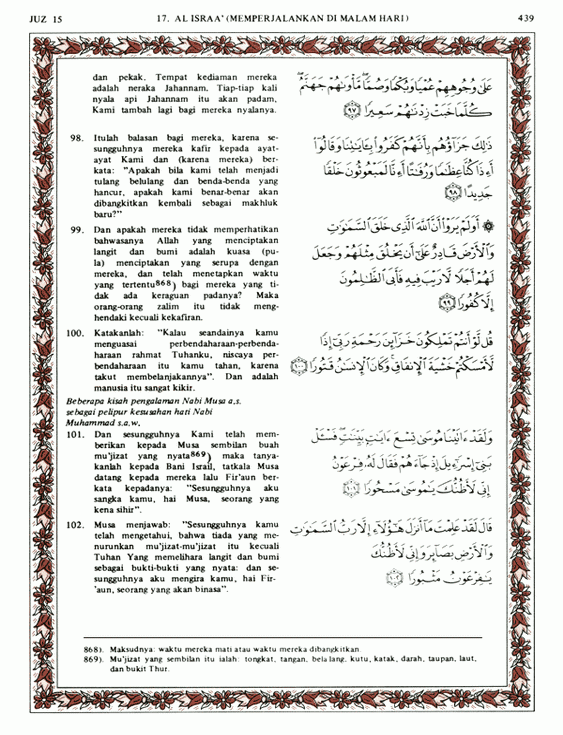 JUZ 15
17. AL ISRAA' (MEMPERJALANKAN DI MALAM HARI)
439
dan pekak. Tempat kediaman mereka
adalah neraka Jahannam. Tiap-tiap kali
nyala api Jahannam itu akan padam,
Kami tambah lagi bagi mereka nyalanya.
عَلَىٰ وُجُوهِهِمْ عُمْيًا وَبُكْمًا وَصُمًّا مَّأْوَىٰهُمْ جَهَنَّمُ
كُلَّمَا خَبَتْ زِدْنَٰهُمْ سَعِيرًا ﴿٩٧﴾
98. Itulah balasan bagi mereka, karena se-
sungguhnya mereka kafir kepada ayat-
ayat Kami dan (karena mereka) ber-
kata: "Apakah bila kami telah menjadi
tulang belulang dan benda-benda yang
hancur, apakah kami benar-benar akan
dibangkitkan kembali sebagai makhluk
baru?"
ذَٰلِكَ جَزَآؤُهُم بِأَنَّهُمْ كَفَرُوا۟ بِـَٔايَٰتِنَا وَقَالُوٓا۟
أَءِذَا كُنَّا عِظَٰمًا وَرُفَٰتًا أَءِنَّا لَمَبْعُوثُونَ خَلْقًا
جَدِيدًا ﴿٩٨﴾
99. Dan apakah mereka tidak memperhatikan
bahwasanya Allah yang menciptakan
langit dan bumi adalah kuasa (pu-
la) menciptakan yang serupa dengan
mereka, dan telah menetapkan waktu
yang tertentu868) bagi mereka yang ti-
dak ada keraguan padanya? Maka
orang-orang zalim itu tidak meng-
hendaki kecuali kekafiran.
۞ أَوَلَمْ يَرَوْا۟ أَنَّ ٱللَّهَ ٱلَّذِى خَلَقَ ٱلسَّمَٰوَٰتِ
وَٱلْأَرْضَ قَادِرٌ عَلَىٰٓ أَن يَخْلُقَ مِثْلَهُمْ وَجَعَلَ
لَهُمْ أَجَلًا لَّا رَيْبَ فِيهِ فَأَبَى ٱلظَّٰلِمُونَ
إِلَّا كُفُورًا ﴿٩٩﴾
100. Katakanlah: "Kalau seandainya kamu
menguasai perbendaharaan-perbenda-
haraan rahmat Tuhanku, niscaya per-
bendaharaan itu kamu tahan, karena
takut membelanjakannya". Dan adalah
manusia itu sangat kikir.
قُل لَّوْ أَنتُمْ تَمْلِكُونَ خَزَآئِنَ رَحْمَةِ رَبِّىٓ إِذًا
لَّأَمْسَكْتُمْ خَشْيَةَ ٱلْإِنفَاقِ وَكَانَ ٱلْإِنسَٰنُ قَتُورًا ﴿١٠٠﴾
Beberapa kisah pengalaman Nabi Musa a.s.
sebagai pelipur kesusahan hati Nabi
Muhammad s.a.w.
101. Dan sesungguhnya Kami telah mem-
berikan kepada Musa sembilan buah
mu'jizat yang nyata869) maka tanya-
kanlah kepada Bani Israil, tatkala Musa
datang kepada mereka lalu Fir'aun ber-
kata kepadanya: "Sesungguhnya aku
sangka kamu, hai Musa, seorang yang
kena sihir".
وَلَقَدْ ءَاتَيْنَا مُوسَىٰ تِسْعَ ءَايَٰتٍۭ بَيِّنَٰتٍ فَسْـَٔلْ
بَنِىٓ إِسْرَٰٓءِيلَ إِذْ جَآءَهُمْ فَقَالَ لَهُۥ فِرْعَوْنُ
إِنِّى لَأَظُنُّكَ يَٰمُوسَىٰ مَسْحُورًا ﴿١٠١﴾
102. Musa menjawab: "Sesungguhnya kamu
telah mengetahui, bahwa tiada yang me-
nurunkan mu'jizat-mu'jizat itu kecuali
Tuhan Yang memelihara langit dan bumi
sebagai bukti-bukti yang nyata: dan se-
sungguhnya aku mengira kamu, hai Fir-
'aun, seorang yang akan binasa".
قَالَ لَقَدْ عَلِمْتَ مَآ أَنزَلَ هَٰٓؤُلَآءِ إِلَّا رَبُّ ٱلسَّمَٰوَٰتِ
وَٱلْأَرْضِ بَصَآئِرَ وَإِنِّى لَأَظُنُّكَ
يَٰفِرْعَوْنُ مَثْبُورًا ﴿١٠٢﴾
868). Maksudnya: waktu mereka mati atau waktu mereka dibangkitkan.
869). Mu'jizat yang sembilan itu ialah: tongkat, tangan, belalang, kutu, katak, darah, taupan, laut,
dan bukit Thur.